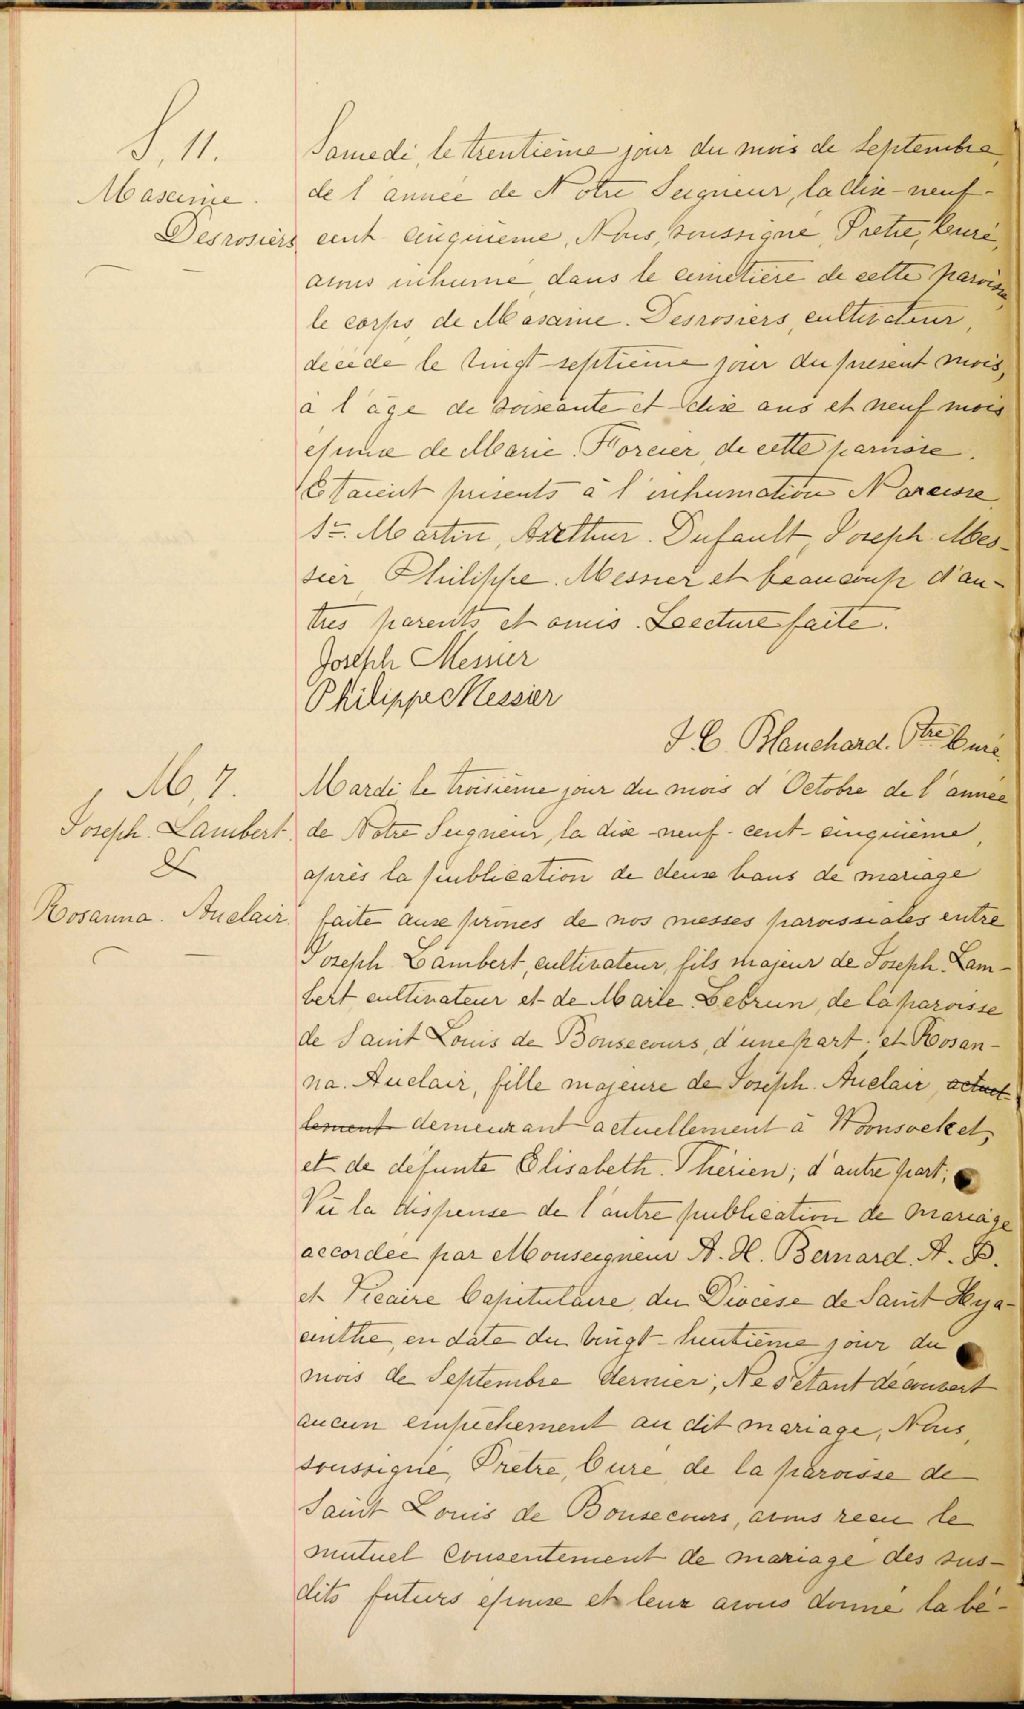 S, 11.
Maxime.
Desrosiers
Samedi, le trentième jour du mois de Septembre,
de l'année de Notre Seigneur, la dix-neuf-
cent cinquième, Nous, soussigné, Prêtre, Curé,
avons inhumé, dans le cimetière de cette paroisse,
le corps, de Maxime. Desrosiers, cultivateur,
décédé le vingt-septième jour du présent mois,
à l'âge de soixante et dix ans et neuf mois
époux de Marie. Forcier, de cette paroisse.
Etaient présents à l'inhumation Narcisse
St. Martin, Arthur. Dufault, Joseph. Mes-
sier, Philippe. Messier et beaucoup d'au-
tres parents et amis. Lecture faite.
Joseph Messier
Philippe Messier
J. C. Blanchard. Ptre Curé.
M, 7.
Joseph. Lambert.
&
Rosanna. Auclair
Mardi le troisième jour du mois d'Octobre de l'année
de Notre Seigneur, la dix-neuf-cent-cinquième,
après la publication de deux bans de mariage
faite aux prônes de nos messes paroissiales entre
Joseph Lambert, cultivateur, fils majeur de Joseph. Lam-
bert, cultivateur et de Marie. Lebrun, de la paroisse
de Saint Louis de Bonsecours, d'une part; et Rosan-
na. Auclair, fille majeure de Joseph. Auclair, actuel-
lement demeurant actuellement à Woonsocket,
et de défunte Elisabeth. Thérien; d'autre part;
Vu la dispense de l'autre publication de mariage
accordée par Monseigneur A. H. Bernard. A. P.
et Vicaire Capitulaire, du Diocèse de Saint Hya-
cinthe, en date du vingt-huitième jour du
mois de Septembre dernier; Ne s'étant découvert
aucun empêchement au dit mariage, Nous,
soussigné, Prêtre, Curé de la paroisse de
Saint Louis de Bonsecours, avons reçu le
mutuel consentement de mariage des sus-
dits futurs époux et leur avons donné la bé-